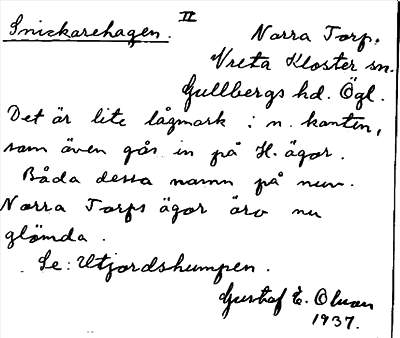 II
Snickarehagen. Norra Torp.
Vreta Kloster sn.
Gullbergs hd. Ögl.
Det är lite lågmark i n. kanten,
som även går in på H. ägor.
Båda dessa namn på nuv.
Norra Torps ägor äro nu
glömda.
Se: Utjordshumpen.
Gustaf E. Olson
1937.